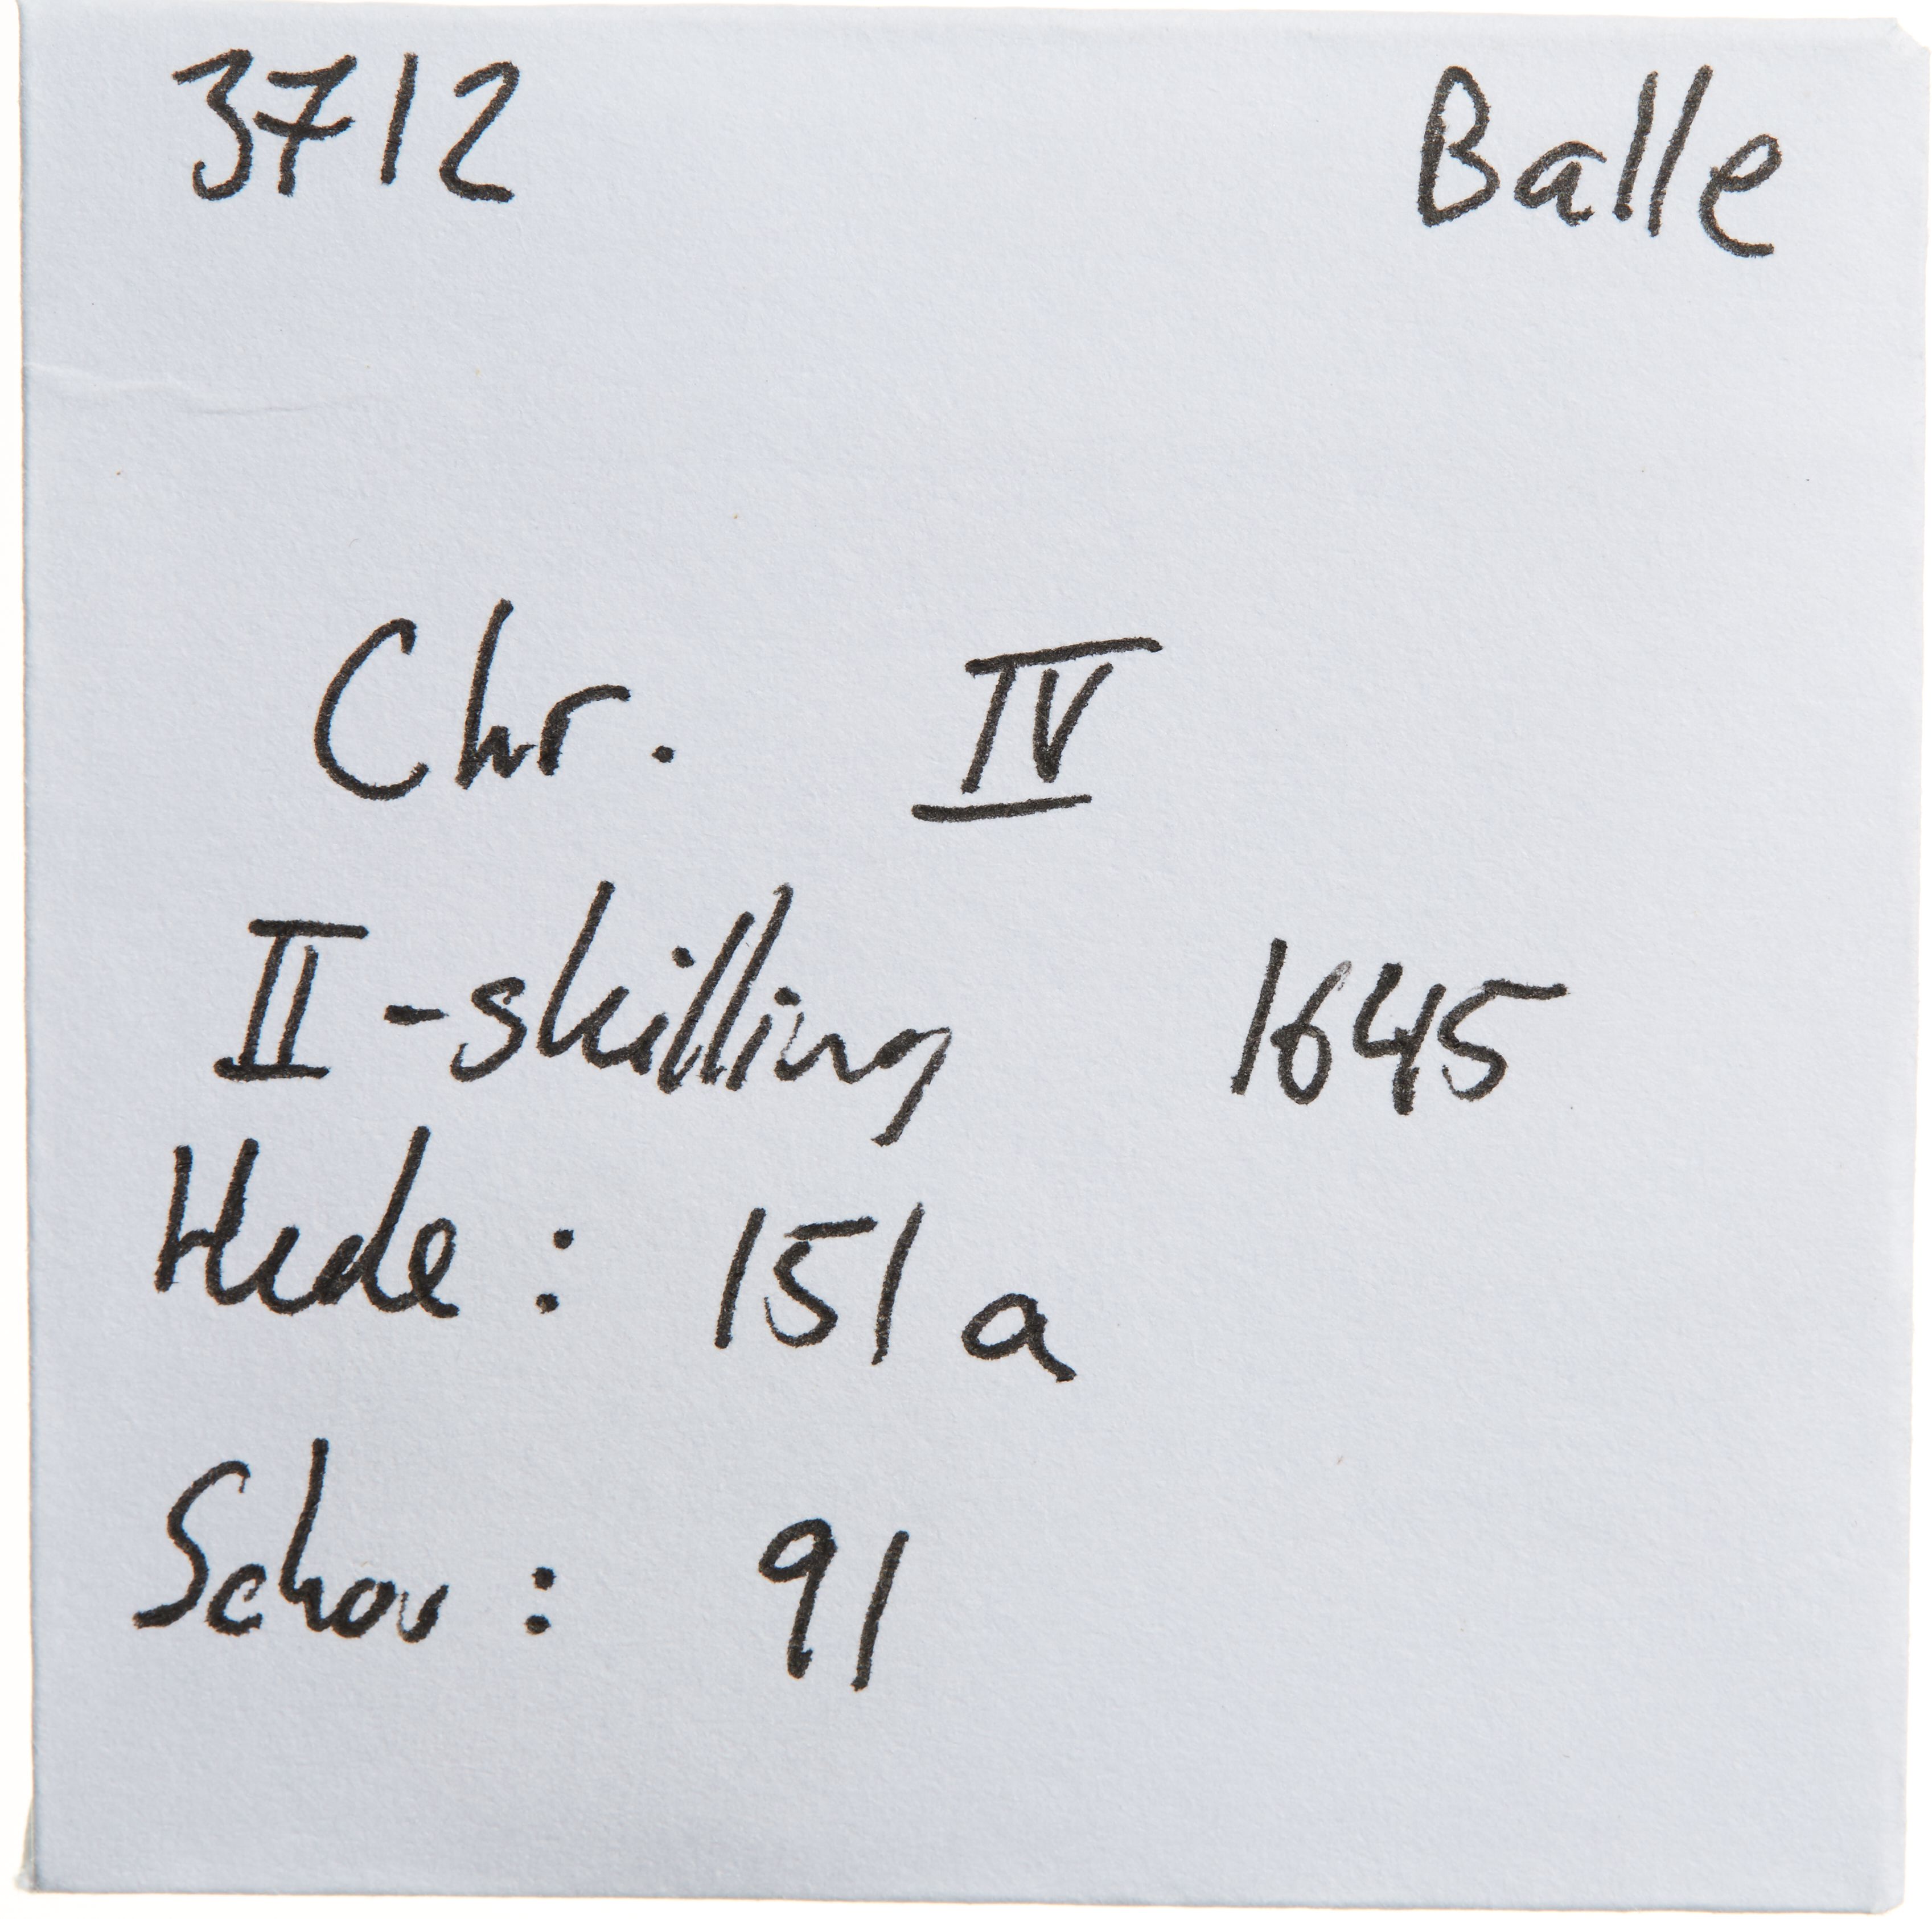 3712 Balle
Chr. IV
II-skilling 1645
Hede: 151a
Schou: 91